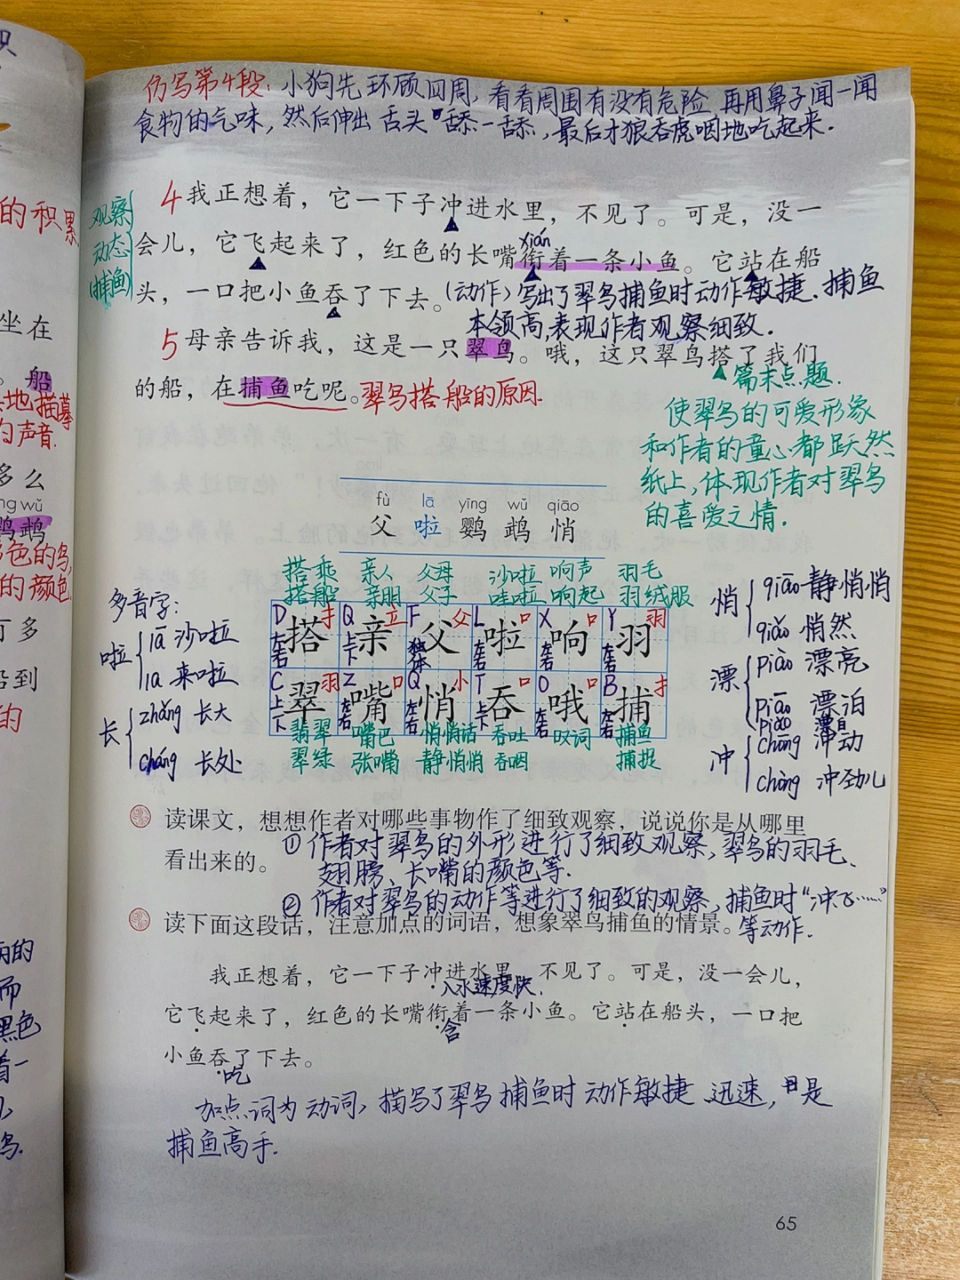 仿写第4段：小狗先环顾四周，看看周围有没有危险，再用鼻子闻一闻
食物的气味，然后伸出舌头舔一舔，最后才狼吞虎咽地吃起来.
观察
动态
(捕鱼)
4 我正想着，它一下子冲进水里，不见了。可是，没一
会儿，它飞起来了，红色的长嘴衔着一条小鱼。它站在船
xián
头，一口把小鱼吞了下去。(动作)写出了翠鸟捕鱼时动作敏捷.捕鱼
本领高,表现作者观察细致.
5 母亲告诉我，这是一只翠鸟。哦，这只翠鸟搭了我们
的船，在捕鱼吃呢。翠鸟搭船的原因.
篇末点题.
使翠鸟的可爱形象
和作者的童心都跃然
纸上,体现作者对翠鸟
的喜爱之情.
fù lā yīng wǔ qiāo
父 啦 鹦 鹉 悄
搭乘 亲人 父母 沙啦 响声 羽毛
搭船 亲朋 父子 哇啦 响起 羽绒服
D扌 Q立 F父 L口 X口 Y羽
搭 亲 父 啦 响 羽
左右 上下 独体 左右 左右 左右
C羽 Z口 Q忄 T口 O口 B扌
翠 嘴 悄 吞 哦 捕
上下 左右 左右 上下 左右 左右
翡翠 嘴巴 悄悄话 吞吐 叹词 捕鱼
翠绿 张嘴 静悄悄 吞咽 捕捉
多音字:
啦 lā 沙啦
la 来啦
长 zhǎng 长大
cháng 长处
悄 qiāo 静悄悄
qiǎo 悄然
漂 piào 漂亮
piāo 漂泊
冲 chōng 冲动
chòng 冲劲儿
读课文，想想作者对哪些事物作了细致观察，说说你是从哪里
看出来的。
①作者对翠鸟的外形进行了细致观察,翠鸟的羽毛、
翅膀、长嘴的颜色等.
②作者对翠鸟的动作等进行了细致的观察,捕鱼时“冲飞……”
等动作.
读下面这段话，注意加点的词语，想象翠鸟捕鱼的情景。
我正想着，它一下子冲进水里，不见了。可是，没一会儿，
入水速度快.
它飞起来了，红色的长嘴衔着一条小鱼。它站在船头，一口把
含
小鱼吞了下去。
吃
加点词为动词，描写了翠鸟捕鱼时动作敏捷、迅速，是
捕鱼高手.
65
的积累
坐在
船
地描摹
的声音.
多么
ng wǔ
鹦鹉
多色的鸟,
的颜色
可多
船到
的
而
黑色
着一